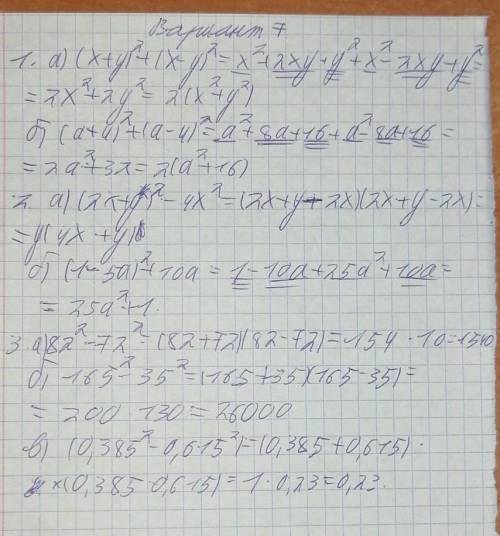 Вариант 7
1. а) (x+y)²+(x-y)²=x²+2xy+y²+x²-2xy+y²=
=2x²+2y²=2(x²+y²)
б) (a+4)²+(a-4)²=a²+8a+16+a²-8a+16=
=2a²+32=2(a²+16)
2. а) (2x+y)²-4x²=(2x+y+2x)(2x+y-2x)=
=y(4x+y)
б) (1-5a)²+10a=1-10a+25a²+10a=
=25a²+1.
3. а) 82²-72²=(82+72)(82-72)=154·10=1540
б) 165²-35²=(165+35)(165-35)=
=200·130=26000
в) (0,385²-0,615²)=(0,385+0,615)·
×(0,385-0,615)=1·0,23=0,23.